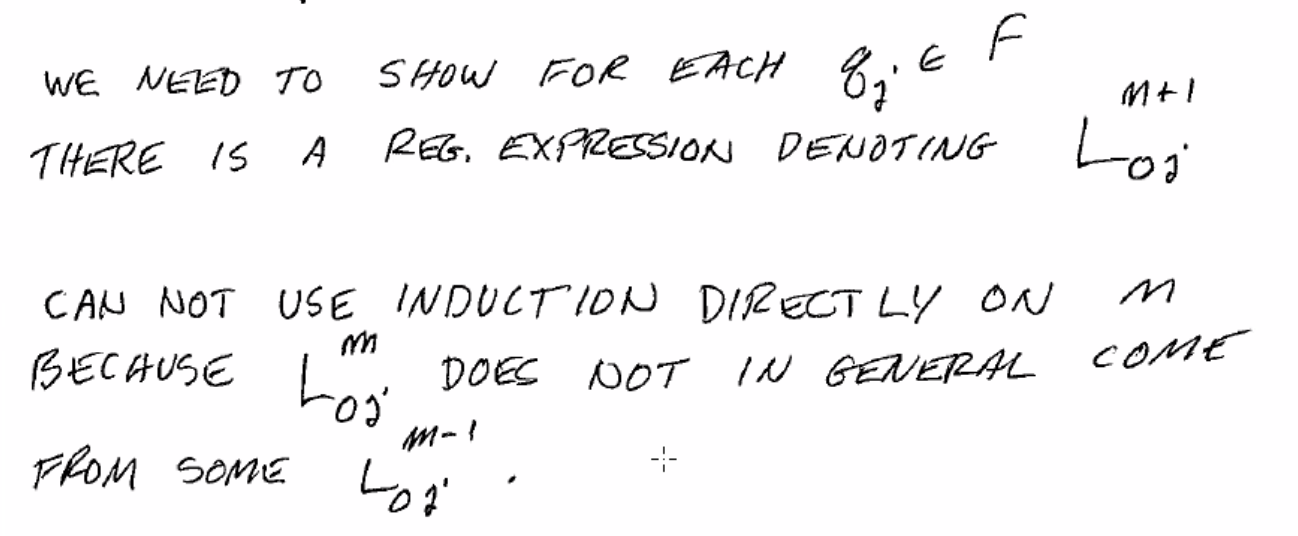 WE NEED TO SHOW FOR EACH q_j ∈ F
THERE IS A REG. EXPRESSION DENOTING L_{0j}^{m+1}
CAN NOT USE INDUCTION DIRECTLY ON M
BECAUSE L_{0j}^{m} DOES NOT IN GENERAL COME
FROM SOME L_{0j}^{m-1}.